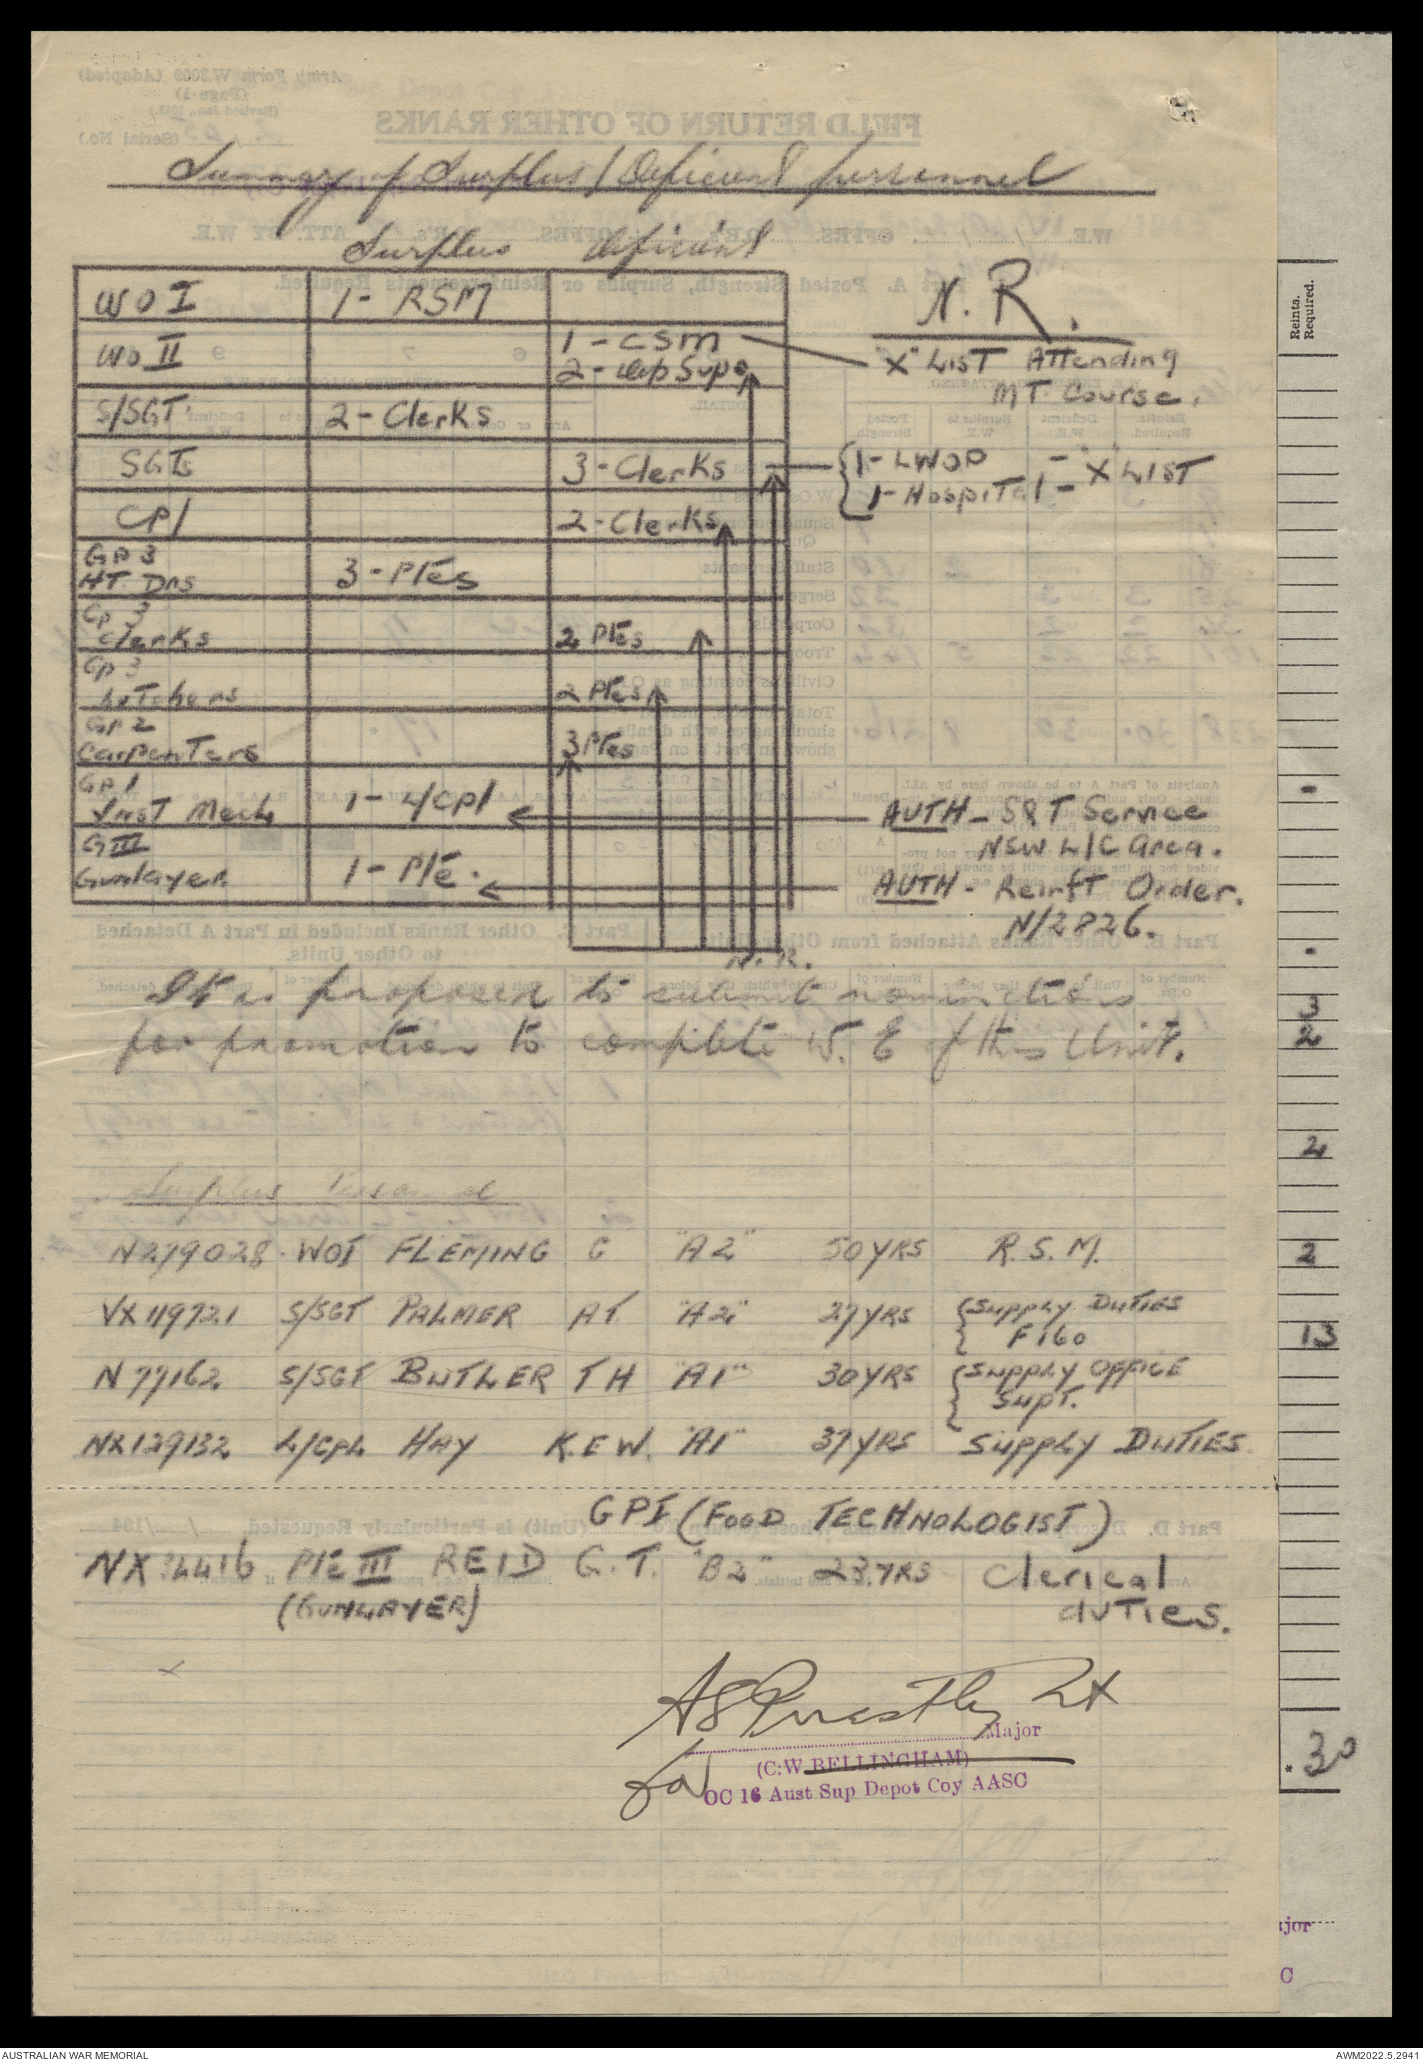 Summary of Surplus / Deficient personnel
Surplus Deficient
WO I 1- RSM
N. R.
WO II 1 - CSM
2 - Sups
"X" LIST Attending
MT. Course.
S/SGT. 2 - Clerks
SGTs 3 - Clerks
1- LWOP
1- Hospital - "X" LIST
CPl 2 - Clerks
GP 3
HT. Drs 3 - Ptes
Gp 3
Clerks 2 Ptes
Gp 3
Butchers 2 Ptes
GP 2
Carpenters 3 Ptes
GP 1
Inst Mech 1 - L/Cpl
AUTH - S&T Service
NSW L/C Area.
G III
Gunlayer 1 - Pte.
AUTH - Reinft Order.
N/2826.
N. R.
It is proposed to submit nominations
for promotion to complete W. E of this Unit.
Surplus Personnel
N279028. WO1 FLEMING G "A2" 50 YRS R. S. M.
VX119721 S/SGT PALMER AT. "A2" 27 YRS Supply Duties
F160
N77162 S/SGT BUTLER T H "A1" 30 YRS Supply Office
Supt.
NX129132 L/CPL HAY K.E W. "A1" 37 YRS SUPPLY DUTIES
GP I (FOOD TECHNOLOGIST)
Pte III REID G. T. "B2" 23.YRS Clerical
(GUNLAYER) duties.
A S Priestley Lt
Major
for (C.W. BELLINGHAM)
OC 16 Aust Sup Depot Coy AASC
Reints.
Required.
-
-
3
2
2
2
13
* 30
ajor
C
AUSTRALIAN WAR MEMORIAL AWM2022.5.2941